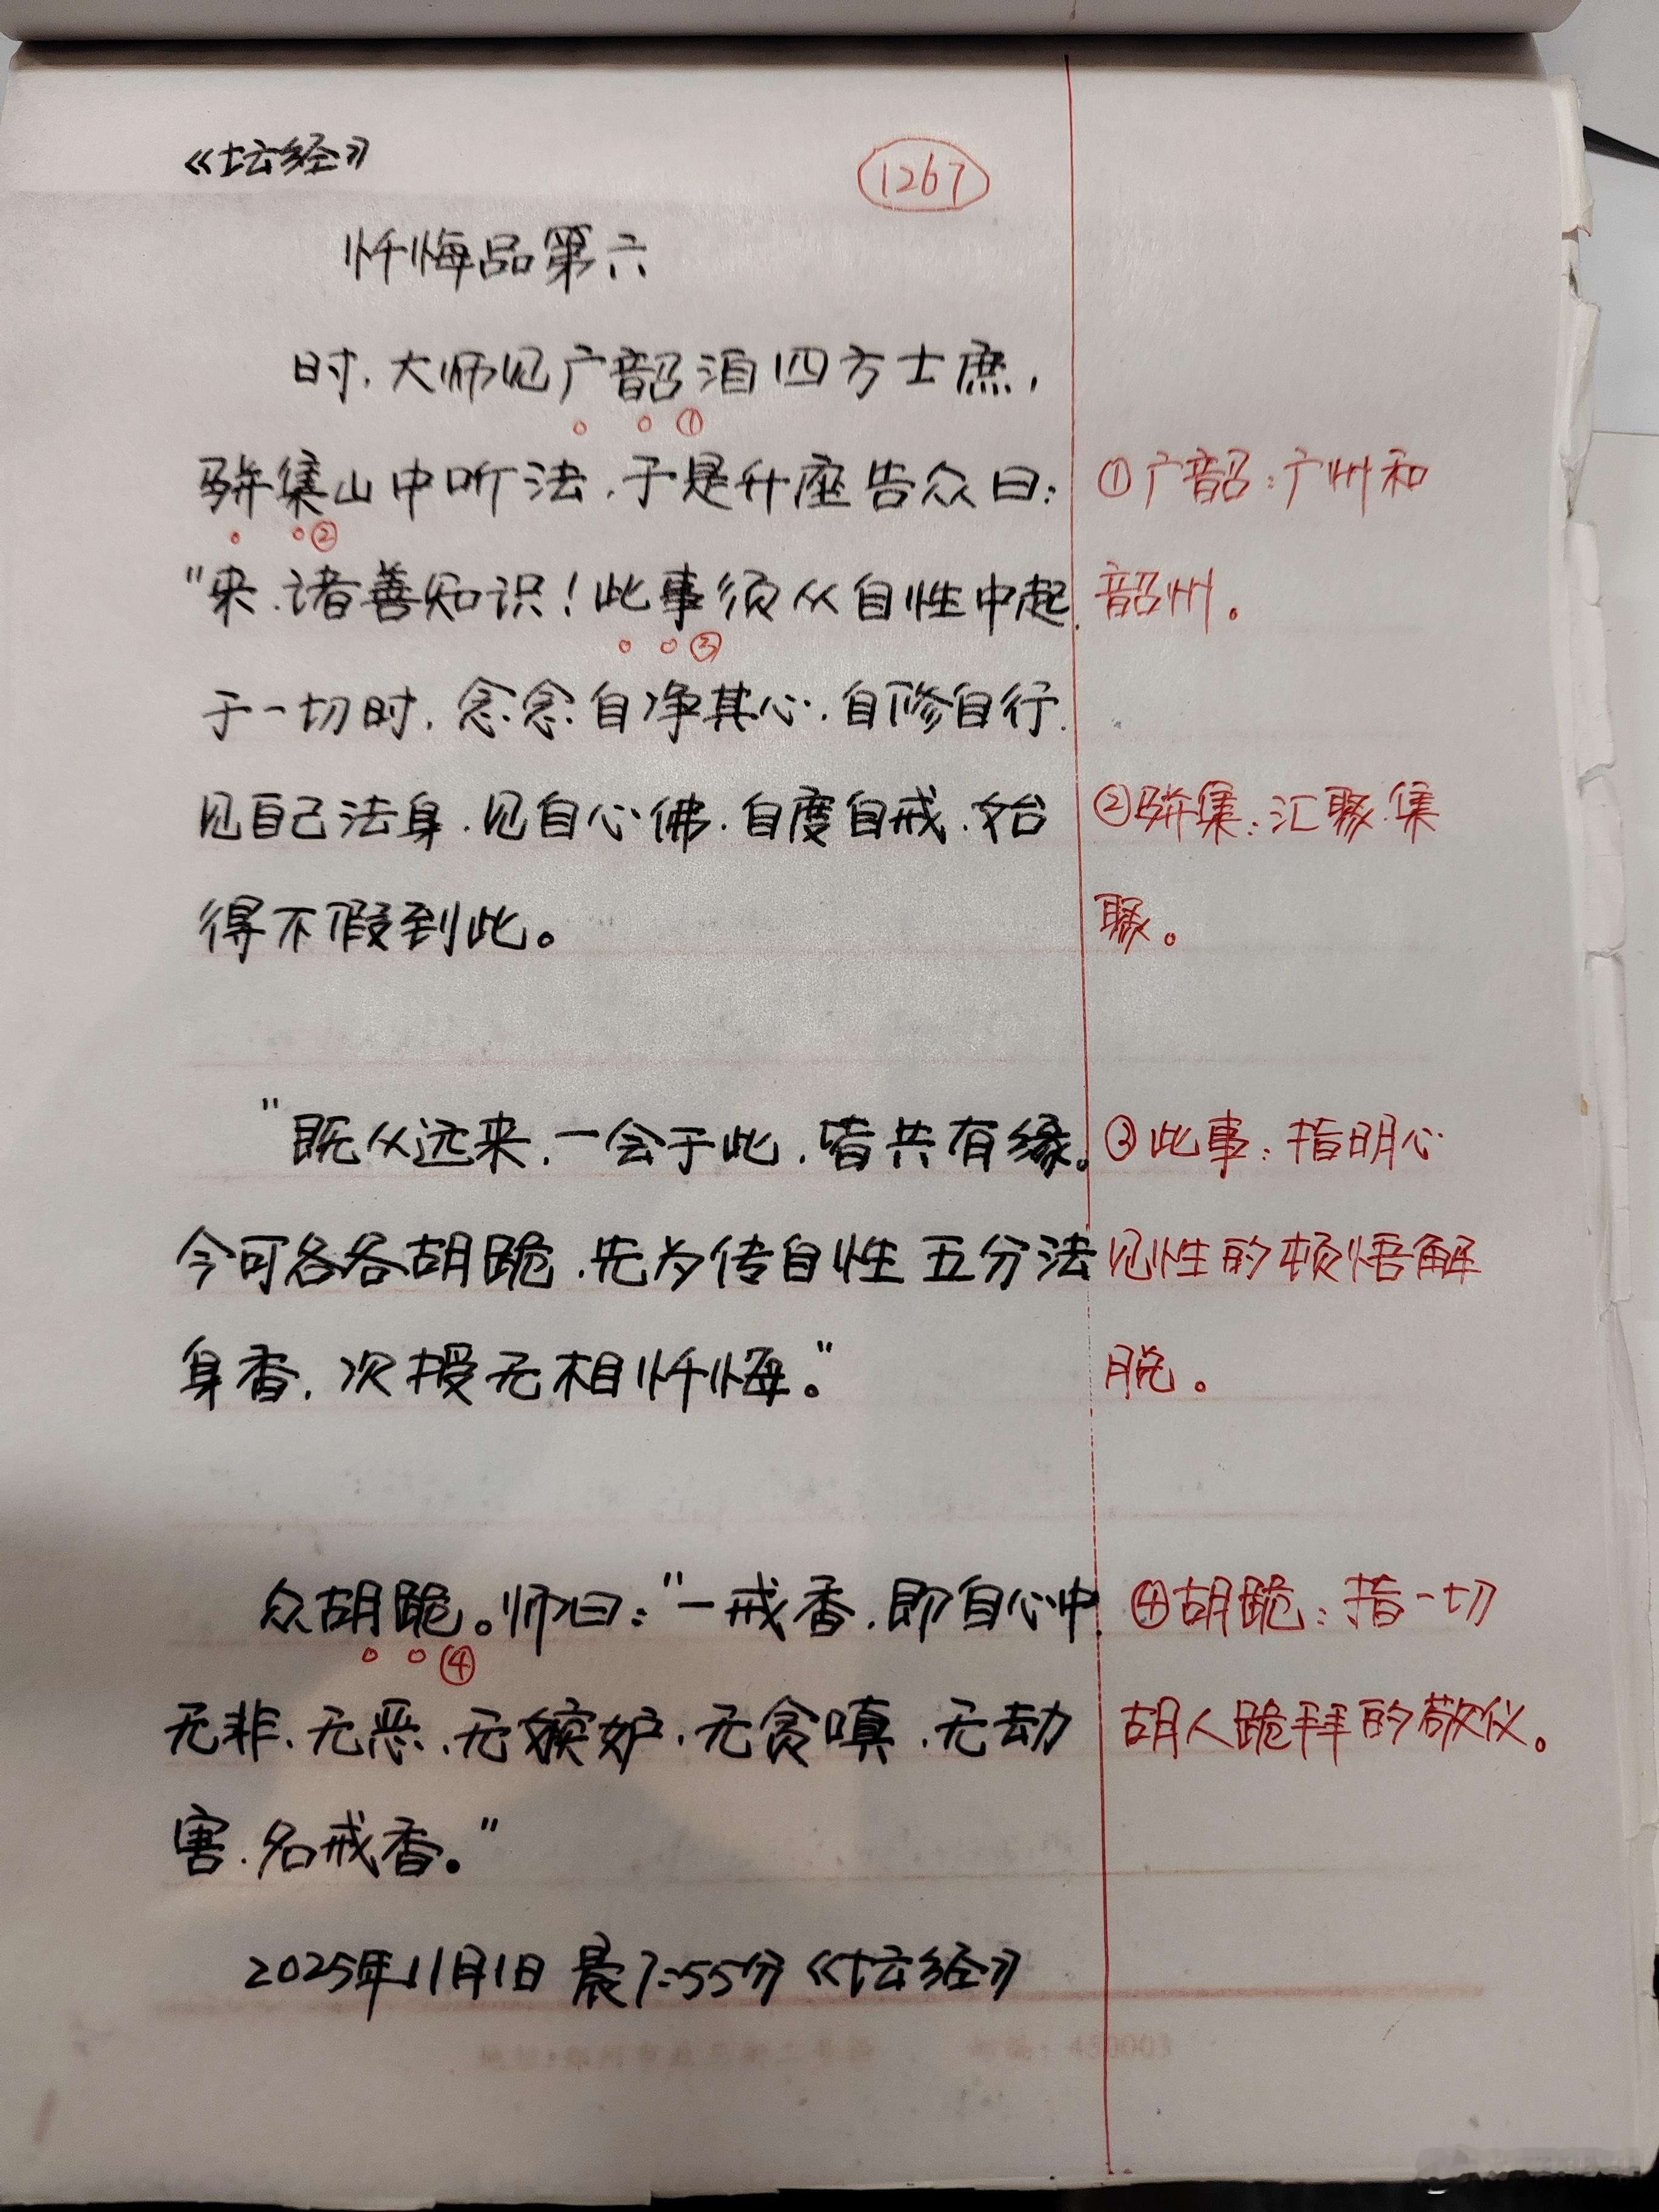 《坛经》
1267
忏悔品第六
时，大师见广韶洎四方士庶，
①
骈集山中听法，于是升座告众曰：
②
"来，诸善知识！此事须从自性中起，
③
于一切时，念念自净其心，自修自行，
见自己法身，见自心佛，自度自戒，始
得不假到此。
"既从远来，一会于此，皆共有缘。
今可各各胡跪，先为传自性五分法
身香，次授无相忏悔。"
众胡跪。师曰："一戒香，即自心中，
④
无非、无恶、无嫉妒、无贪嗔、无劫
害，名戒香。"
2025年11月1日 晨7:55分《坛经》
①广韶：广州和
韶州。
②骈集：汇聚，集
聚。
③此事：指明心
见性的顿悟解
脱。
④胡跪：指一切
胡人跪拜的敬仪。
450003